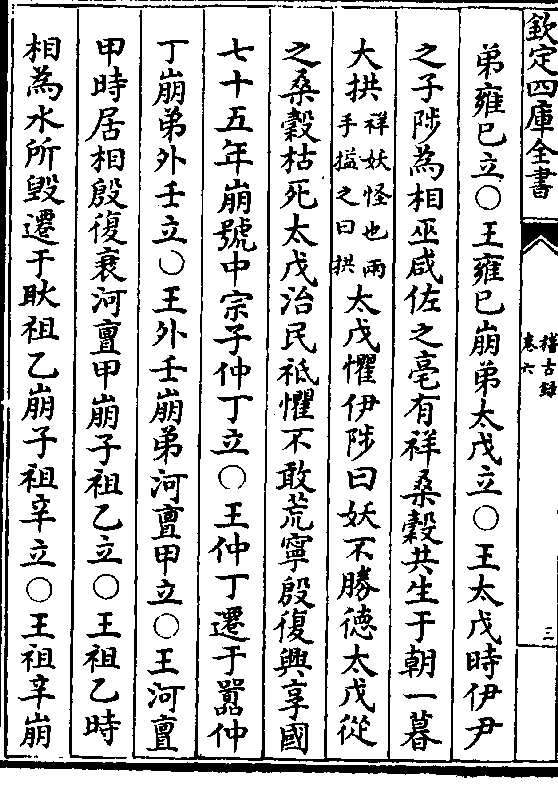 欽定四庫全書
稽古録
卷六
三
弟雍巳立○王雍巳崩弟太戊立○王太戊時伊尹
之子陟為相巫咸佐之亳有祥桑榖共生于朝一暮
大拱祥妖怪也兩手搤之曰拱太戊懼伊陟曰妖不勝徳太戊從
之桑榖枯死太戊治民祗懼不敢荒寧殷復興享國
七十五年崩號中宗子仲丁立○王仲丁遷于嚻仲
丁崩弟外壬立○王外壬崩弟河亶甲立○王河亶
甲時居相殷復衰河亶甲崩子祖乙立○王祖乙時
相為水所毀遷于耿祖乙崩子祖辛立○王祖辛崩